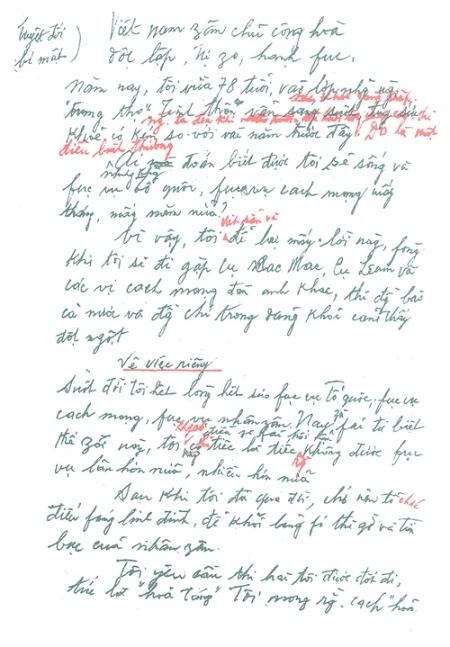 Tuyệt đối
bí mật)
Việt nam zân chủ cộng hoà
độc lập, tự zo, hạnh fúc.
Năm nay, tôi vừa 78 tuổi, vào lớp những người
"trung thọ". Tinh thần vẫn sáng suốt, thân thể
khoẻ có kém so với vài năm trước đây. Đó là một
điều bình thường
Ai mà đoán biết được tôi sẽ sống và
fục vụ tổ quốc, fục vụ cách mạng mấy
tháng, mấy năm nữa?
Vì vậy, tôi để lại mấy lời này, fòng
khi tôi sẽ đi gặp cụ Các Mác, cụ Lênin và
các vị cách mạng đàn anh khác, thì đồng bào
cả nước và đồng chí trong đảng khỏi cảm thấy
đột ngột.
Về việc riêng
Suốt đời tôi hết lòng hết sức fục vụ Tổ quốc, fục vụ
cách mạng, fục vụ nhân zân. Nay zù fải từ biệt
thế zới này, tôi không có điều gì fải hối hận
chỉ tiếc là tiếc không được fục
vụ lâu hơn nữa, nhiều hơn nữa
Sau khi tôi đã qua đời, chớ nên tổ chức
điếu fúng linh đình, để khỏi lãng fí thì giờ và tiền
bạc của nhân zân.
Tôi yêu cầu thi hài tôi được đốt đi,
tức là "hoả táng". Tôi mong rằng cách "hoả